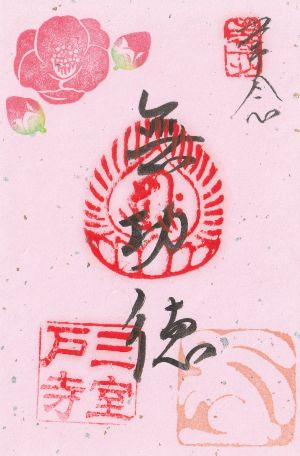 拝念
無功徳
三室
戸寺